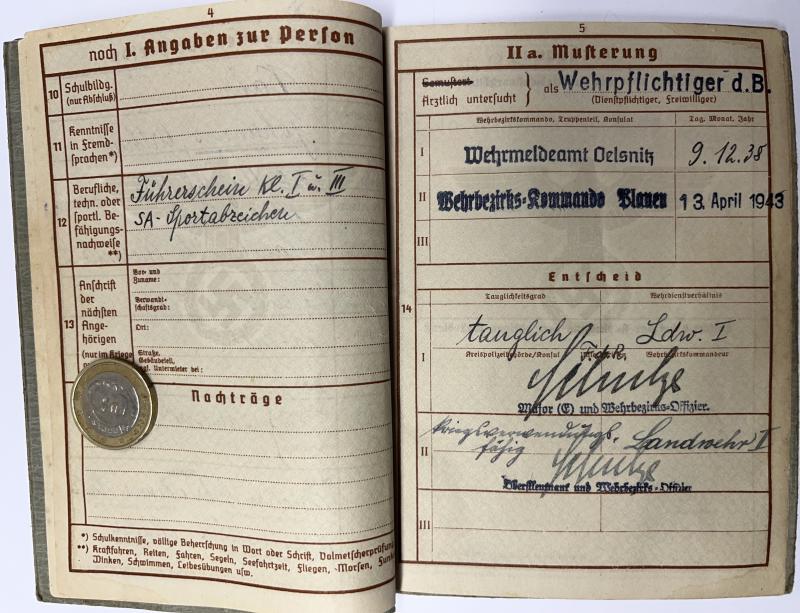 4
noch I. Angaben zur Person
10
Schulbildg.
(nur Abschluß)
11
Kenntnisse
in Fremd-
sprachen *)
12
Berufliche,
techn. oder
sportl. Be-
fähigungs-
nachweise
**)
Führerschein Kl. I u. III
SA-Sportabzeichen
13
Anschrift
der
nächsten
Ange-
hörigen
(nur im Kriege
Vor- und
Zuname:
Verwandt-
schaftsgrad:
Ort:
Straße,
Gebäudeteil,
ggf. Untermieter bei:
Nachträge
*) Schulkenntnisse, völlige Beherrschung in Wort oder Schrift, Dolmetscherprüfung
**) Kraftfahren, Reiten, Fahren, Segeln, Seefahrtzeit, Fliegen, Morsen, Funk
Winken, Schwimmen, Leibesübungen usw.
5
II a. Musterung
Gemustert
Ärztlich untersucht } als Wehrpflichtiger d.B.
(Dienstpflichtiger, Freiwilliger)
Wehrbezirkskommando, Truppenteil, Konsulat Tag, Monat, Jahr
I Wehrmeldeamt Oelsnitz 9.12.38
II Wehrbezirks-Kommando Plauen 13. April 1943
III
Entscheid
14
Tauglichkeitsgrad Wehrdienstverhältnis
I tauglich Ldw. I
Kreispolizeibehörde/Konsul Wehrbezirkskommandeur
Major (E) und Wehrbezirks-Offizier.
II kriegsverwendungs- Landwehr I
fähig
Oberstleutnant und Wehrbezirks-Offizier
III